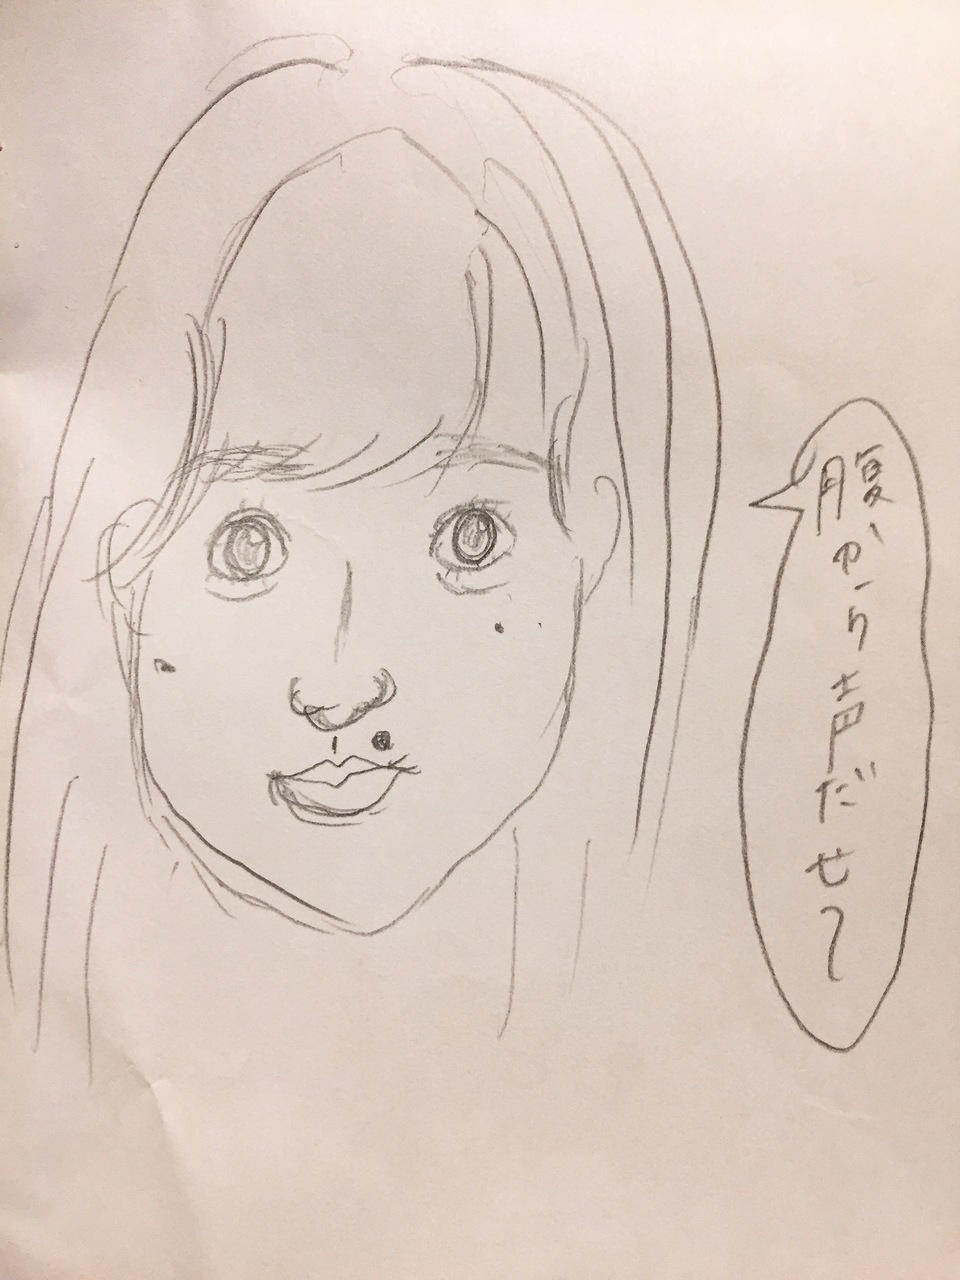 腹から声だせ〜